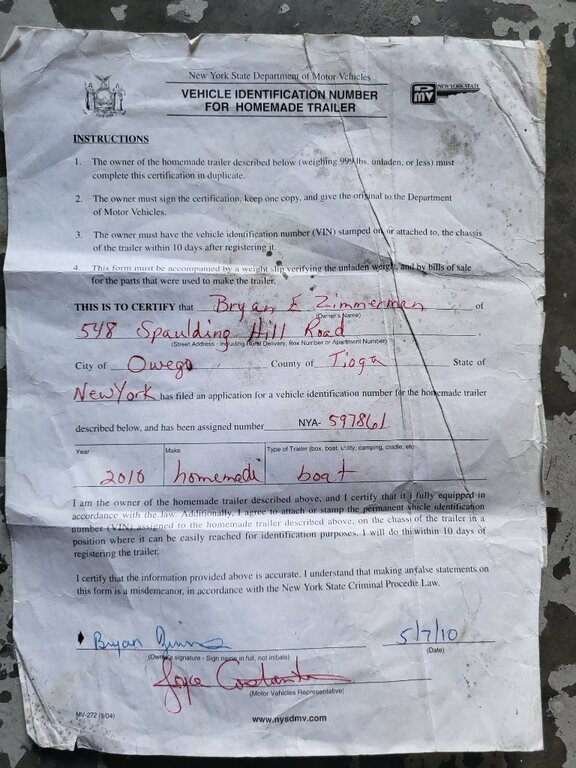 New York State Department of Motor Vehicles
VEHICLE IDENTIFICATION NUMBER
FOR HOMEMADE TRAILER
DMV NEW YORK STATE
INSTRUCTIONS
1. The owner of the homemade trailer described below (weighing 999 lbs. unladen, or less) must
complete this certification in duplicate.
2. The owner must sign the certification, keep one copy, and give the original to the Department
of Motor Vehicles.
3. The owner must have the vehicle identification number (VIN) stamped on, or attached to, the chassis
of the trailer within 10 days after registering it.
4. This form must be accompanied by a weight slip verifying the unladen weight, and by bills of sale
for the parts that were used to make the trailer.
THIS IS TO CERTIFY that Bryan E Zimmerman of
(Owner's Name)
548 Spaulding Hill Road ,
(Street Address - including Rural Delivery, Box Number or Apartment Number)
City of Owego County of Tioga State of
New York has filed an application for a vehicle identification number for the homemade trailer
described below, and has been assigned number NYA- 597861
Year Make Type of Trailer (box, boat, utility, camping, cradle, etc
2010 homemade boat
I am the owner of the homemade trailer described above, and I certify that it i fully equipped in
accordance with the law. Additionally, I agree to attach or stamp the permanent vehicle identification
number (VIN) assigned to the homemade trailer described above, on the chassi of the trailer in a
position where it can be easily reached for identification purposes. I will do thi within 10 days of
registering the trailer.
I certify that the information provided above is accurate. I understand that making any false statements on
this form is a misdemeanor, in accordance with the New York State Criminal Procedure Law.
Bryan 5/7/10
(Owner's signature - Sign name in full, not initials) (Date)
Joyce
(Motor Vehicles Representative)
MV-272 (9/04)
www.nysdmv.com